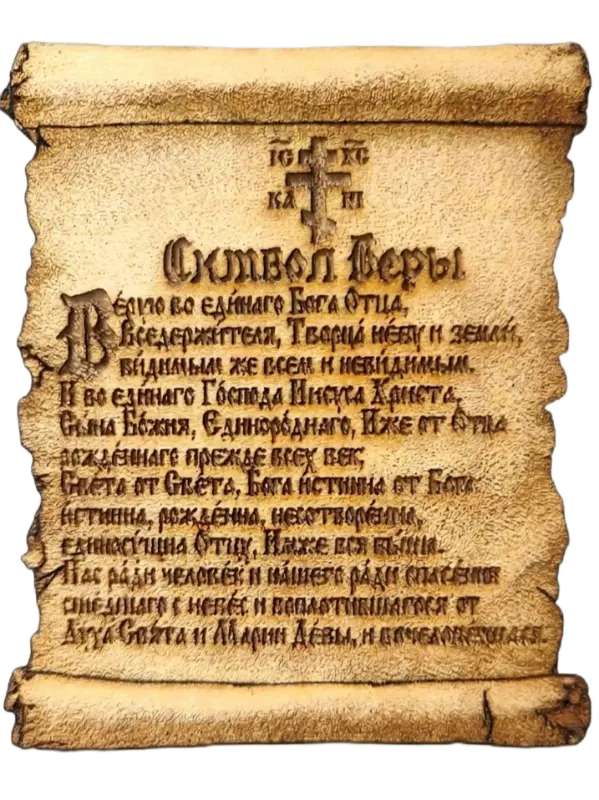 І҃С Х҃С
КА М
Символ Веры
Ве́рую во еди́наго Бога Отца,
Вседержи́теля, Творца́ не́бу и земли́,
ви́димым же всем и неви́димым.
И во еди́наго Го́спода Иисуса Христа,
Сы́на Бо́жия, Единоро́днаго, Иже от Отца
рожде́ннаго прежде всех век;
Све́та от Све́та, Бога и́стинна от Бога
и́стинна, рожде́нна, несотворе́нна,
единосу́щна Отцу, Имже вся бы́ша.
Нас ра́ди челове́к и на́шего ра́ди спасе́ния
сшедшаго с небе́с и воплоти́вшагося от
Ду́ха Свя́та и Марии Де́вы, и вочелове́чшася.